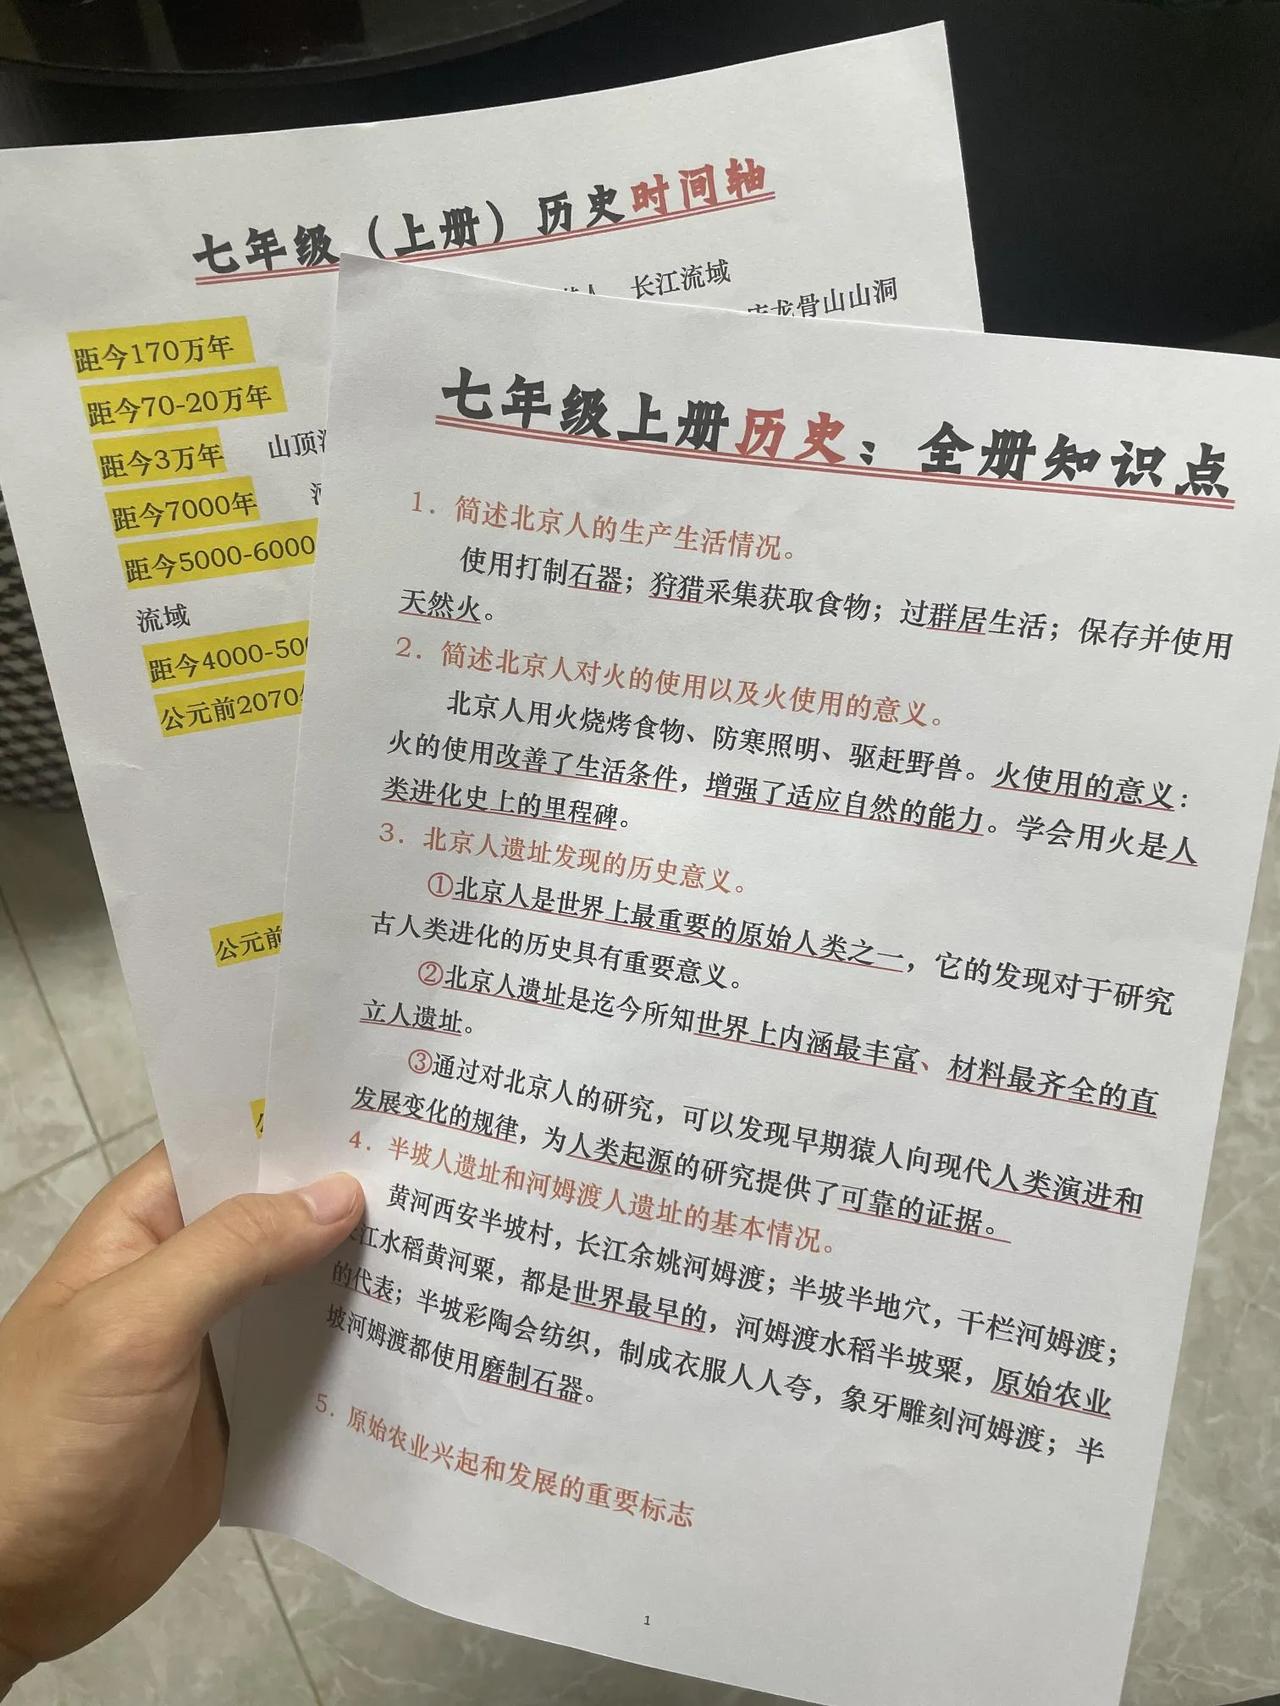 七年级（上册）历史时间轴
长江流域
龙骨山山洞
距今170万年
距今70-20万年
距今3万年 山顶
距今7000年
距今5000-6000
流域
距今4000-500
公元前2070
公元前
七年级上册历史：全册知识点
1. 简述北京人的生产生活情况。
使用打制石器；狩猎采集获取食物；过群居生活；保存并使用
天然火。
2. 简述北京人对火的使用以及火使用的意义。
北京人用火烧烤食物、防寒照明、驱赶野兽。火使用的意义：
火的使用改善了生活条件，增强了适应自然的能力。学会用火是人
类进化史上的里程碑。
3. 北京人遗址发现的历史意义。
①北京人是世界上最重要的原始人类之一，它的发现对于研究
古人类进化的历史具有重要意义。
②北京人遗址是迄今所知世界上内涵最丰富、材料最齐全的直
立人遗址。
③通过对北京人的研究，可以发现早期猿人向现代人类演进和
发展变化的规律，为人类起源的研究提供了可靠的证据。
4. 半坡人遗址和河姆渡人遗址的基本情况。
黄河西安半坡村，长江余姚河姆渡；半坡半地穴，干栏河姆渡；
江水稻黄河粟，都是世界最早的，河姆渡水稻半坡粟，原始农业
的代表；半坡彩陶会纺织，制成衣服人人夸，象牙雕刻河姆渡；半
坡河姆渡都使用磨制石器。
5. 原始农业兴起和发展的重要标志
1